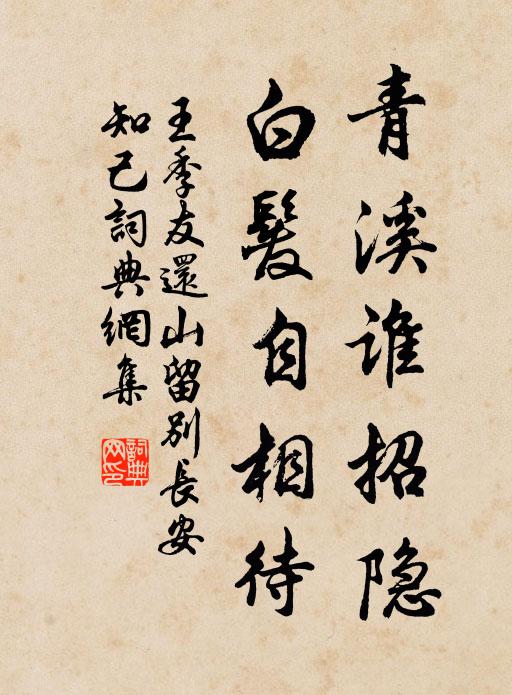 青溪誰招隐
白髮自相待
王季友還山留別長安
知己詞典網集
詞典
网印